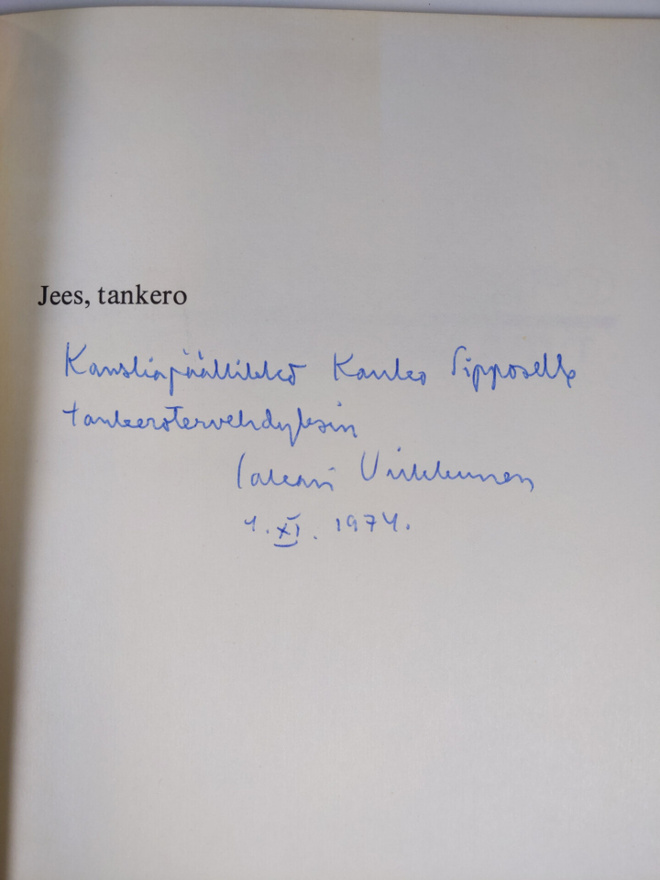 Jees, tankero
Kansliapäällikkö Kauko Sipposelle
tankerotervehdyksin
Sakari Virkkunen
4.XI.1974.